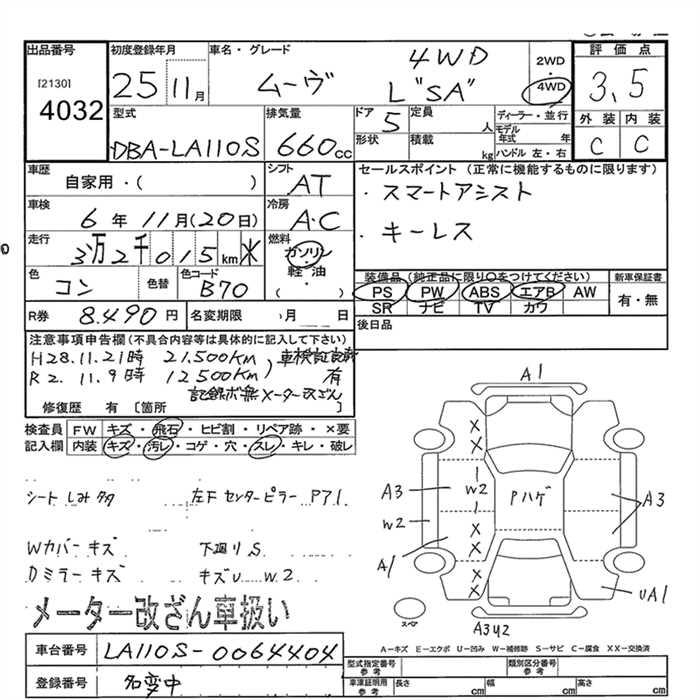 出品番号 初度登録年月 車名・グレード 評価点
[2130]
4032
25 11月 ムーヴ 4WD L"SA" 2WD・4WD 3,5
型式 排気量 ドア 定員 ディーラー・並行 外装 内装
DBA-LA110S 660cc 5 人 モデル年式 年 C C
形状 積載 kg ハンドル 左・右
車歴 シフト セールスポイント (正常に機能するものに限ります)
自家用・( ) AT ・スマートアシスト
車検 冷房
6年11月(20日) A・C ・キーレス
走行 燃料
3万2千015km ガソリン・軽・油・( )
色 コン 色替 色コード B70
装備品 (純正品に限り○をつけてください) 新車保証書
PS PW ABS エアB AW 有・無
SR ナビ TV カワ
R券 8.490円 名変期限 月 日 後日品
注意事項申告欄(不具合内容等は具体的に記入して下さい)
H28.11.21時 21,500KM
R2.11.9時 12500KM 有
記録ボ無 メーター改ざん
修復歴 有 [箇所
検査員記入欄 FW キズ・飛石・ヒビ割・リペア跡・×要
内装 キズ・汚レ・コゲ・穴・スレ・キレ・破レ
シートしみタタ 左Fセンターピラー P71.
Wカバーキズ 下廻りS
Dミラーキズ キズu w2
メーター改ざん車扱い
A1
X
X
A3 w2 Pハゲ A3
w2
X
X
A1
X
X
UA1
スペア
A3U2
A-キズ E-エクボ U-凹み W-補修跡 S-サビ C-腐食 XX-交換済
車台番号 LA110S-0064404
登録番号 名変中
型式指定番号 参考 類別区分番号 参考
車庫証明用 参考 長さ cm 幅 cm 高さ cm